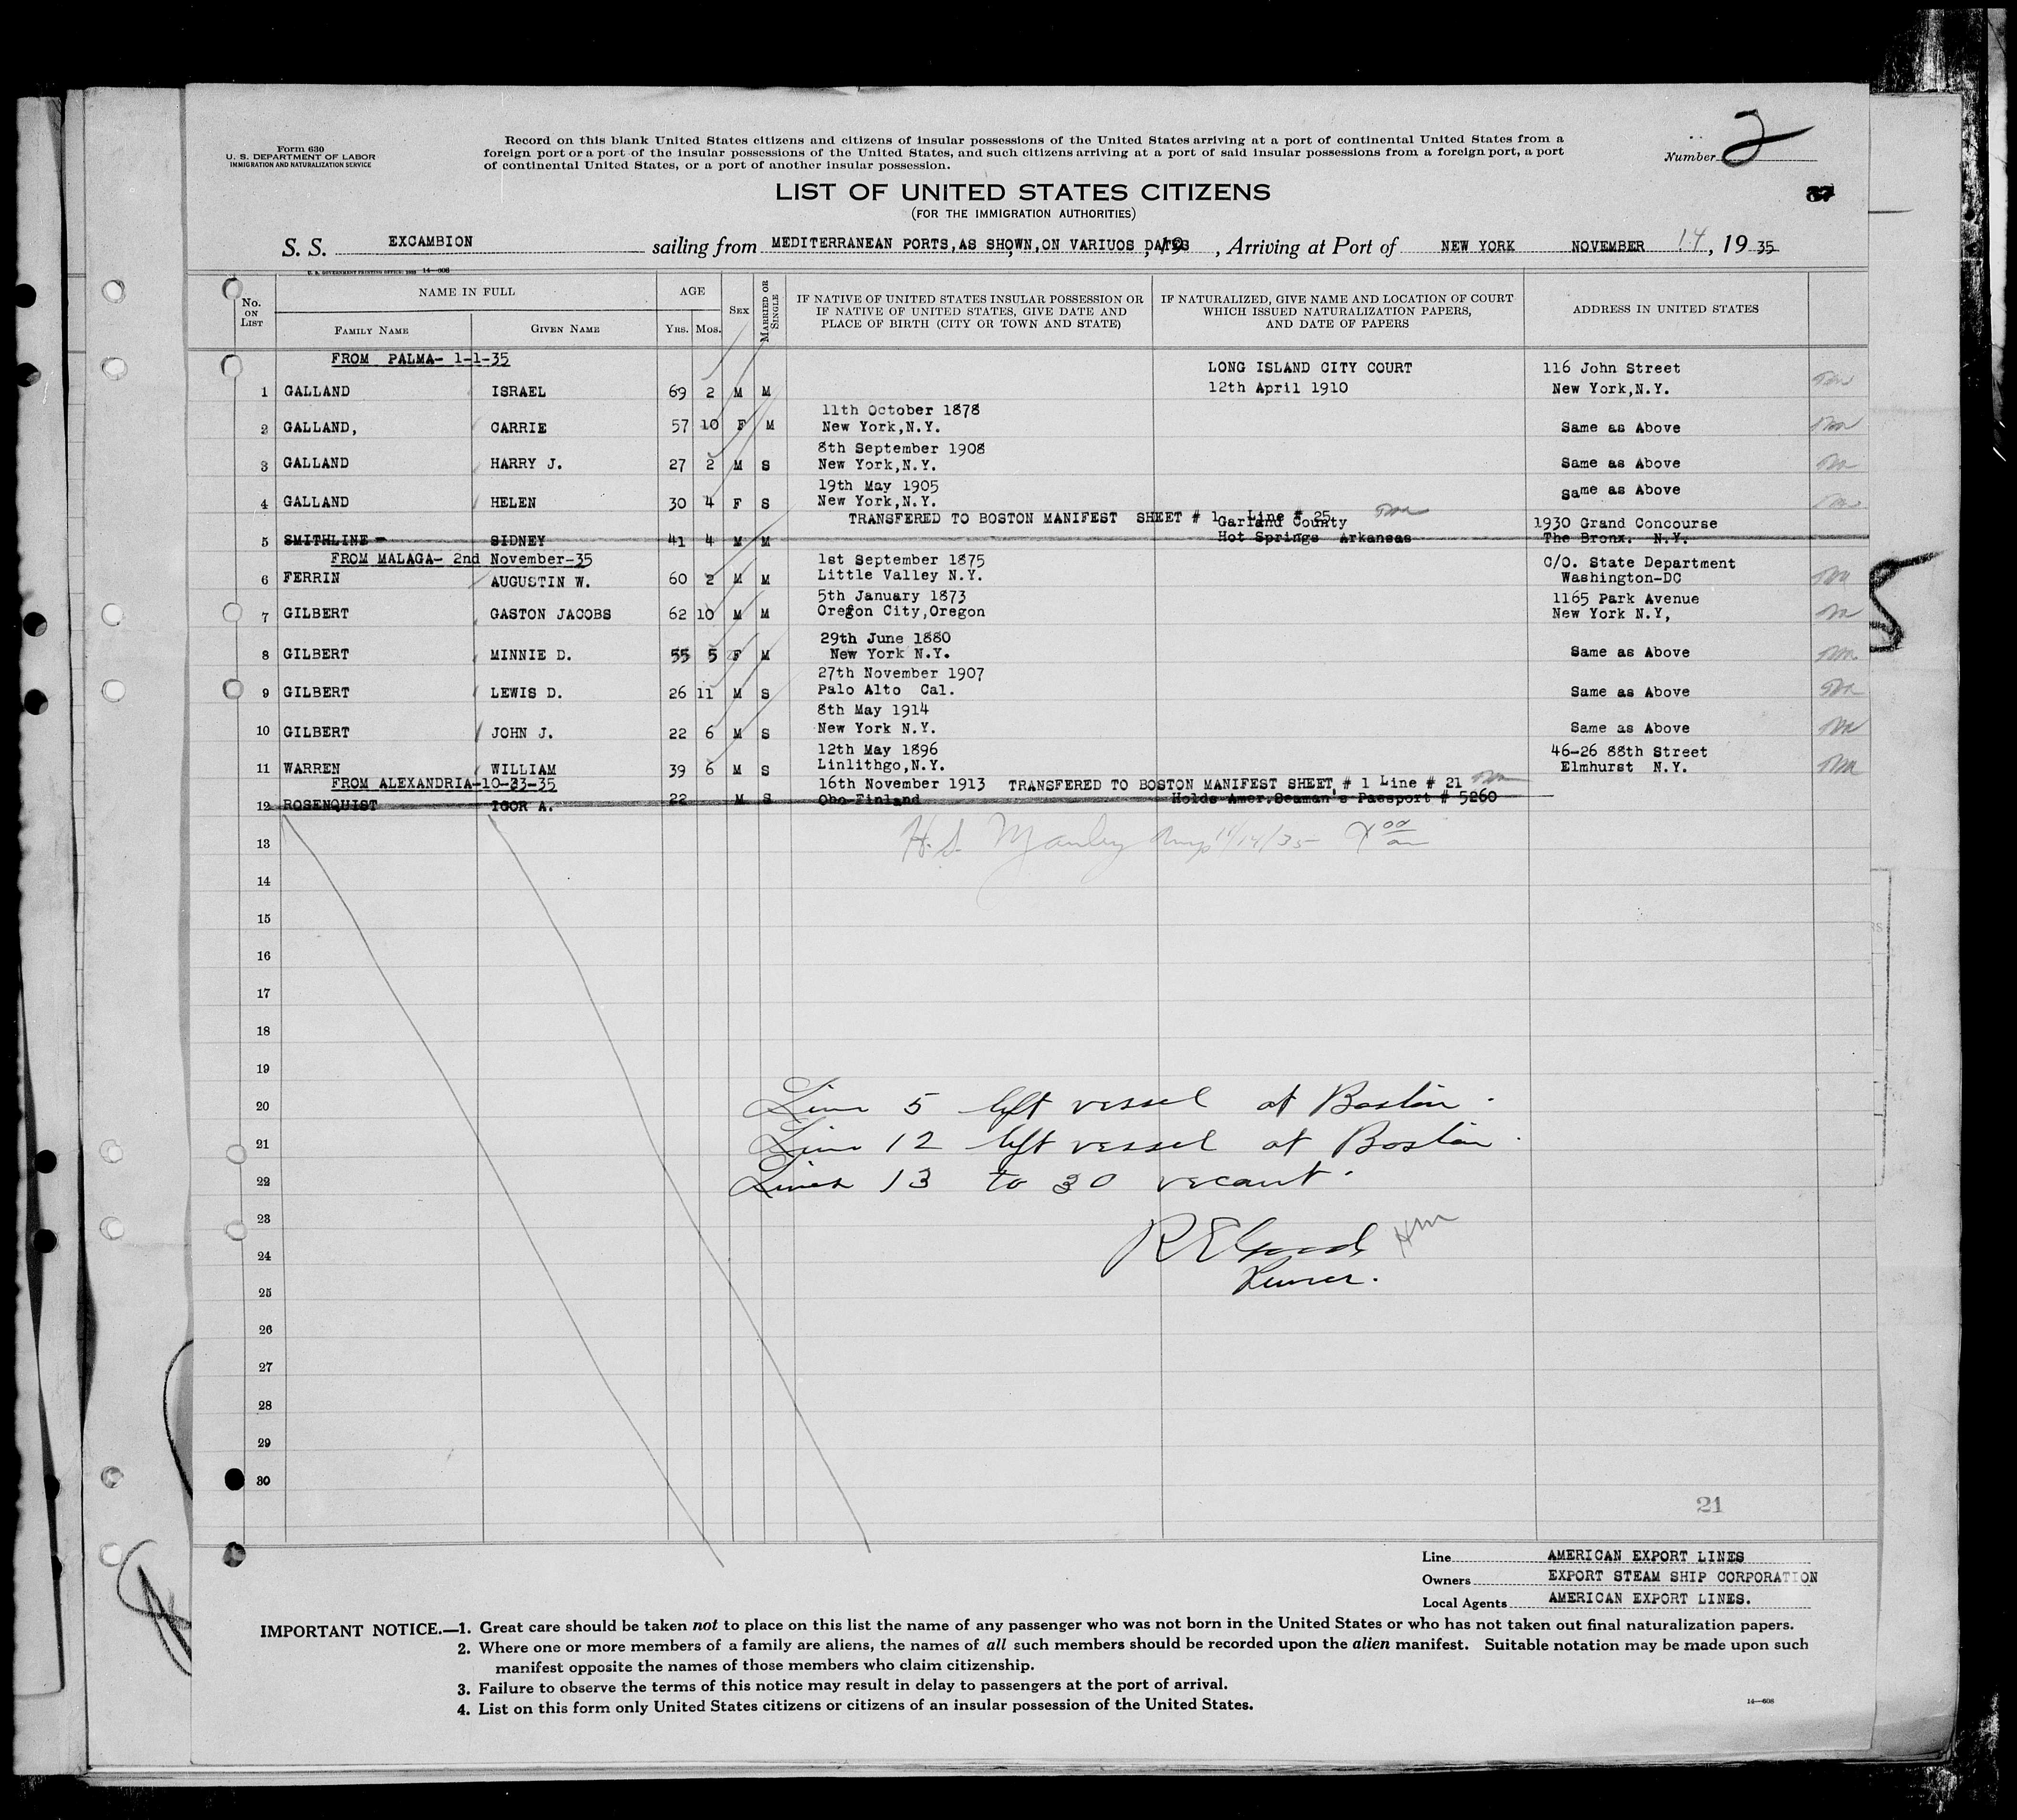 Form 630
U. S. DEPARTMENT OF LABOR
IMMIGRATION AND NATURALIZATION SERVICE
Record on this blank United States citizens and citizens of insular possessions of the United States arriving at a port of continental United States from a
foreign port or a port of the insular possessions of the United States, and such citizens arriving at a port of said insular possessions from a foreign port, a port
of continental United States, or a port of another insular possession.
Number 2
LIST OF UNITED STATES CITIZENS
(FOR THE IMMIGRATION AUTHORITIES)
37
S. S. EXCAMBION sailing from MEDITERRANEAN PORTS,AS SHOWN,ON VARIUOS DATES, 19 , Arriving at Port of NEW YORK NOVEMBER 14, 19 35
U. S. GOVERNMENT PRINTING OFFICE: 1933 14—608
No. ON LIST
NAME IN FULL
FAMILY NAME GIVEN NAME
AGE
YRS. MOS.
SEX
MARRIED OR SINGLE
IF NATIVE OF UNITED STATES INSULAR POSSESSION OR
IF NATIVE OF UNITED STATES, GIVE DATE AND
PLACE OF BIRTH (CITY OR TOWN AND STATE)
IF NATURALIZED, GIVE NAME AND LOCATION OF COURT
WHICH ISSUED NATURALIZATION PAPERS,
AND DATE OF PAPERS
ADDRESS IN UNITED STATES
FROM PALMA- 1-1-35
LONG ISLAND CITY COURT 116 John Street
1 GALLAND ISRAEL 69 2 M M 12th April 1910 New York,N.Y.
11th October 1878
2 GALLAND, CARRIE 57 10 F M New York,N.Y. Same as Above
8th September 1908
3 GALLAND HARRY J. 27 2 M S New York,N.Y. Same as Above
19th May 1905
4 GALLAND HELEN 30 4 F S New York,N.Y. Same as Above
TRANSFERED TO BOSTON MANIFEST SHEET # 1 Line # 25
Garland County 1930 Grand Concourse
5 SMITHLINE - SIDNEY 41 4 M M Hot Springs Arkansas The Bronx. N.Y.
FROM MALAGA- 2nd November-35
1st September 1875 C/O. State Department
6 FERRIN AUGUSTIN W. 60 2 M M Little Valley N.Y. Washington-DC
5th January 1873 1165 Park Avenue
7 GILBERT GASTON JACOBS 62 10 M M Oregon City,Oregon New York N.Y,
29th June 1880
8 GILBERT MINNIE D. 55 5 F M New York N.Y. Same as Above
27th November 1907
9 GILBERT LEWIS D. 26 11 M S Palo Alto Cal. Same as Above
8th May 1914
10 GILBERT JOHN J. 22 6 M S New York N.Y. Same as Above
12th May 1896 46-26 88th Street
11 WARREN WILLIAM 39 6 M S Linlithgo,N.Y. Elmhurst N.Y.
FROM ALEXANDRIA-10-23-35
16th November 1913 TRANSFERED TO BOSTON MANIFEST SHEET, # 1 Line # 21
12 ROSENQUIST IGOR A. 22 M S Obo-Finland Holds Amer.Seaman's Passport # 5260
13
H. S. Manley 11/14/35
14
15
16
17
18
19
20 Line 5 left vessel at Boston.
21 Line 12 left vessel at Boston.
22 Lines 13 to 30 vacant.
23
24
25
26
27
28
29
30
21
Line AMERICAN EXPORT LINES
Owners EXPORT STEAM SHIP CORPORATION
Local Agents AMERICAN EXPORT LINES.
IMPORTANT NOTICE.—1. Great care should be taken not to place on this list the name of any passenger who was not born in the United States or who has not taken out final naturalization papers.
2. Where one or more members of a family are aliens, the names of all such members should be recorded upon the alien manifest. Suitable notation may be made upon such
manifest opposite the names of those members who claim citizenship.
3. Failure to observe the terms of this notice may result in delay to passengers at the port of arrival.
4. List on this form only United States citizens or citizens of an insular possession of the United States.
14—608